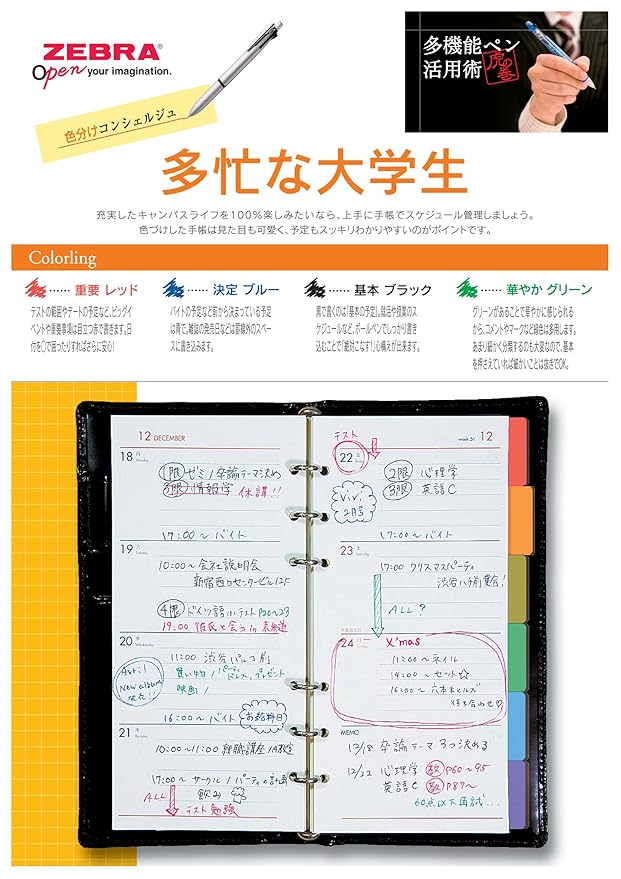 ZEBRA®
Open your imagination.
色分けコンシェルジュ
多機能ペン
活用術
虎の巻
多忙な大学生
充実したキャンパスライフを100%楽しみたいなら、上手に手帳でスケジュール管理しましょう。
色づけした手帳は見た目も可愛く、予定もスッキリわかりやすいのがポイントです。
Colorling
…… 重要 レッド
テストの範囲やデートの予定など、ビッグイ
ベントや重要事項は目立つ赤で書きます。日
付を〇で囲ったりすればさらに安心!
…… 決定 ブルー
バイトの予定など前から決まっている予定
は青で。雑誌の発売日などは罫線外のスペー
スに書き込みます。
…… 基本 ブラック
黒で書くのは「基本の予定」。就活や授業のス
ケジュールなど、ボールペンでしっかり書き
込むことで「絶対こなす!」心構えが出来ます。
…… 華やか グリーン
グリーンがあることで華やかに感じられる
から、コメントやマークなど緑色は多用します。
あまり細かく分類するのも大変なので、基本
を押さえていれば細かいことは抜きでOK。
12 DECEMBER
18 月
Monday
1限 ゼミ/卒論テーマ決め
3限 情報学 休講!!
17:00〜バイト
19 火
Tuesday
10:00〜会社説明会
新宿西口センタービル12F
4限 ドイツ語 小テスト P20〜23
19:00 彼氏と会う in 表参道
20 水
Wednesday
11:00 渋谷パルコ前
買い物/パーティドレス、プレゼント
映画!
Avril
New album
発売!!
16:00〜バイト
お給料日
21 木
10:00〜11:00 就職講座/A教室
17:00〜サークル/パーティの計画
飲み
ALL
テスト勉強
week 51
12
テスト
22 金
2限 心理学
3限 英語C
ViVi
2月号
17:00〜バイト
23 土
Saturday
17:00 クリスマスパーティ
渋谷ハチ前集合!
ALL?
24 日
X'mas
11:00〜ネイル
14:00〜セット☆
16:00〜六本木ヒルズ
待ち合わせ♡
MEMO
12/18 卒論テーマ 3つ決める
12/22 心理学 教 P60〜95
英語C 教 P87〜
60点以下再試…